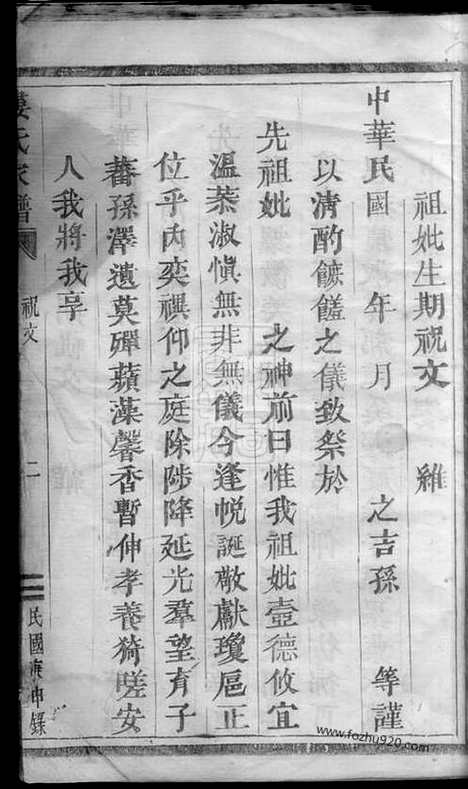 祖妣生期祝文　維
中華民國　年　月　之吉孫　等謹
以清酌餼饈之儀致祭於
先祖妣　之神前曰惟我祖妣壼德攸宜
溫恭淑愼無非無儀今逢悅誕敬獻瓊巵正
位乎內奕禩仰之庭除陟降延光羣望育子
蕃孫澤遺莫殫蘋藻馨香暫伸孝養猗嗟安
人我將我享
婁氏家譜
祝文
二
民國庚申鐫
www.fozhu920.com